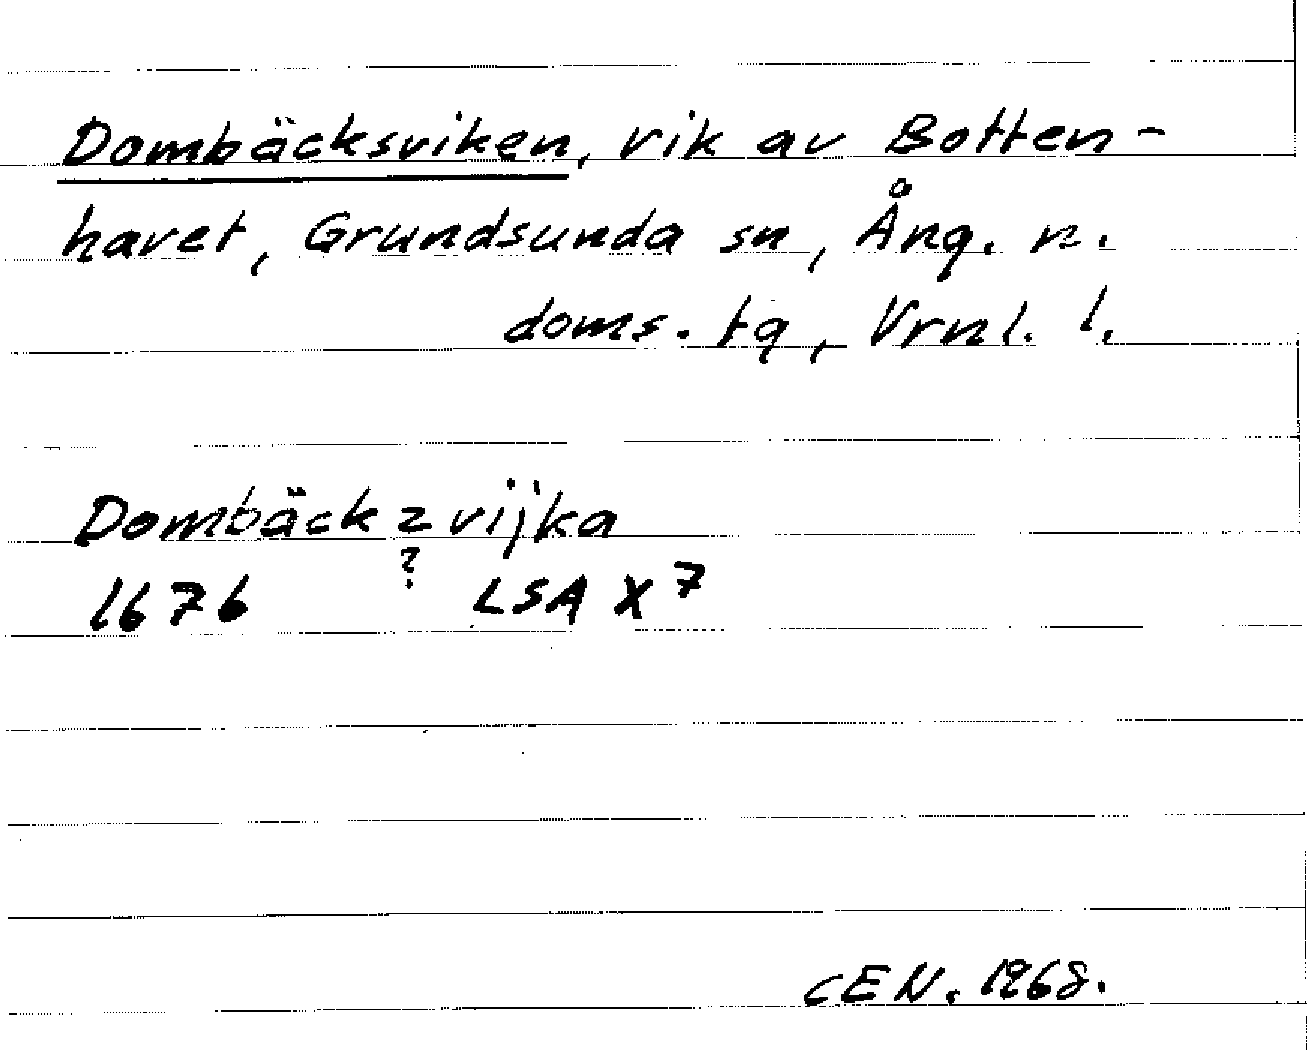 Dombäcksviken, vik av Botten-
havet, Grundsunda sn, Ång. n.
doms. tg, Vrnl. l.
Dombäckzvijka
?
1676 LSA X7
CEN. 1968.